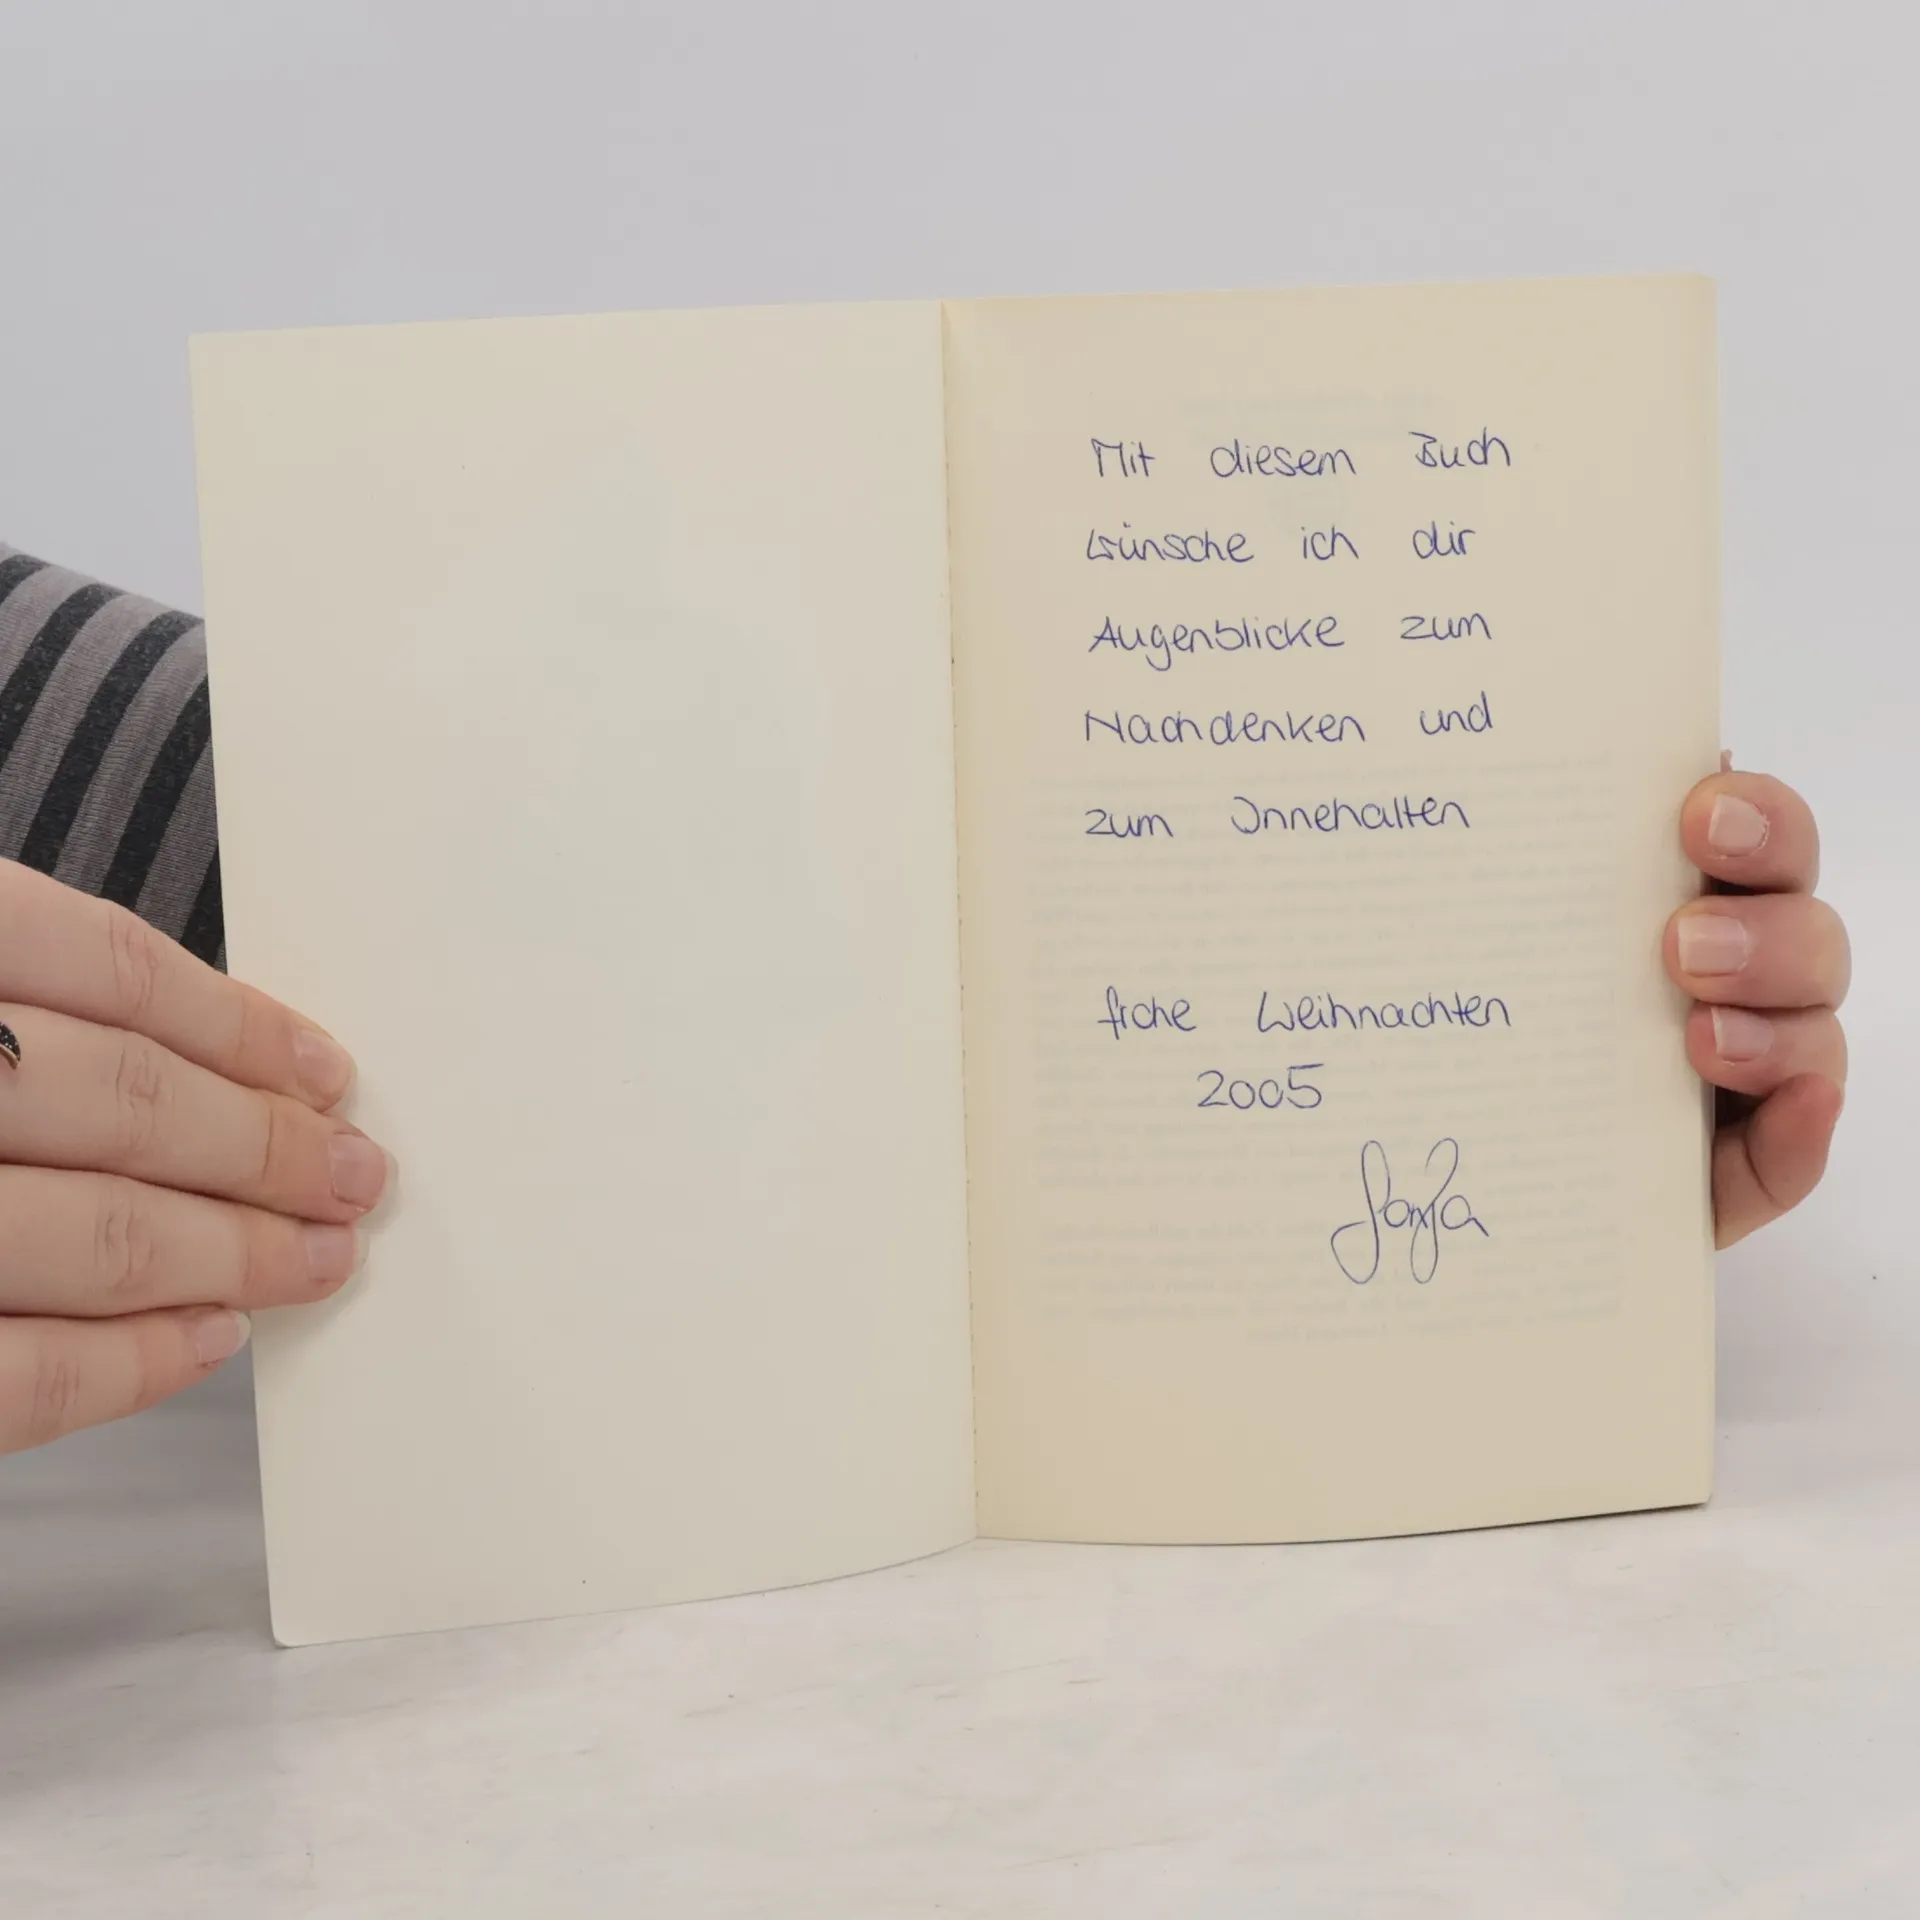 Mit diesem Buch
wünsche ich dir
Augenblicke zum
Nachdenken und
zum Innehalten
frohe Weihnachten
2005
Sonja